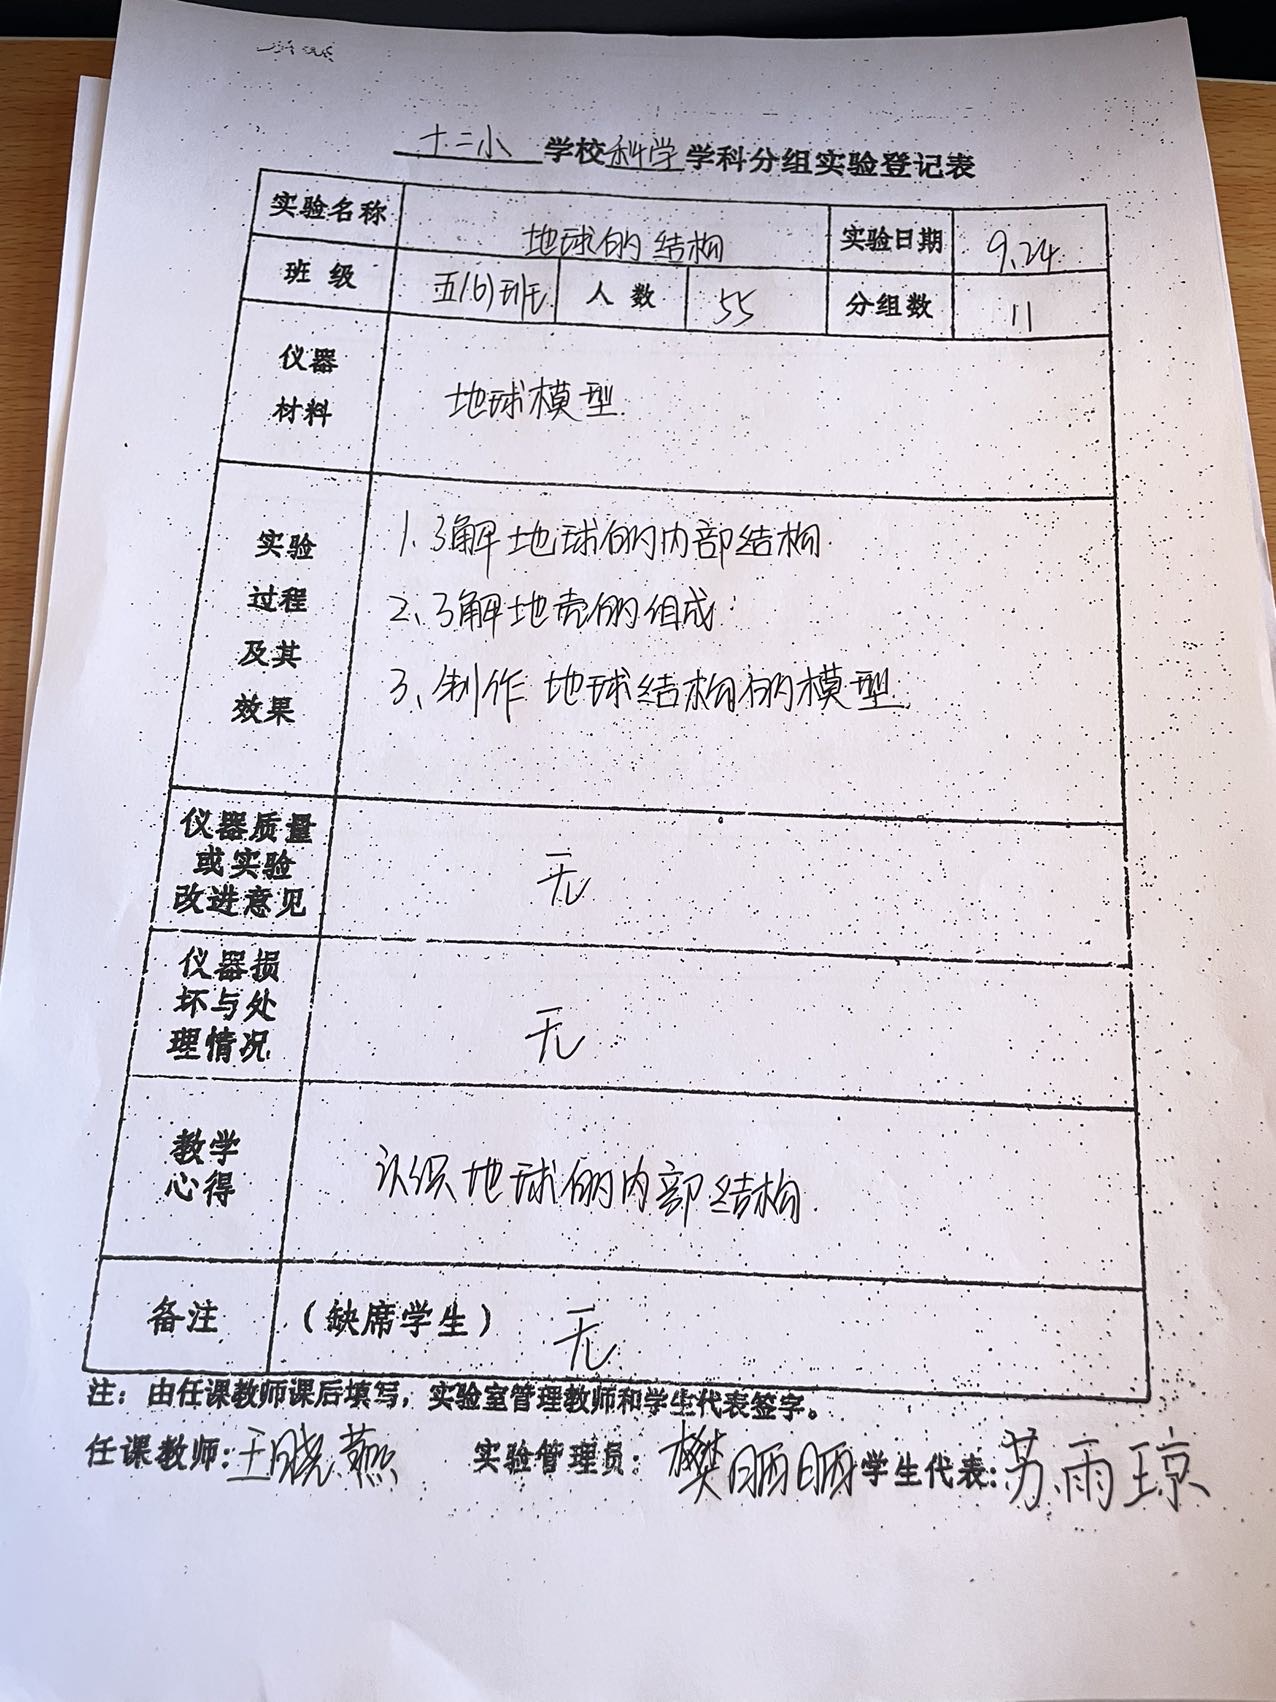 十二小 学校科学学科分组实验登记表
实验名称 地球的结构 实验日期 9.24
班级 五(6)班 人数 55 分组数 11
仪器
材料
地球模型.
实验
过程
及其
效果
1.了解地球的内部结构.
2、了解地壳的组成.
3、制作地球结构的模型.
仪器质量
或实验
改进意见
无
仪器损
坏与处
理情况
无
教学
心得
认识地球的内部结构.
备注 (缺席学生) 无
注：由任课教师课后填写，实验室管理教师和学生代表签字。
任课教师: 王晓燕 实验管理员: 樊晒晒 学生代表: 苏雨琼